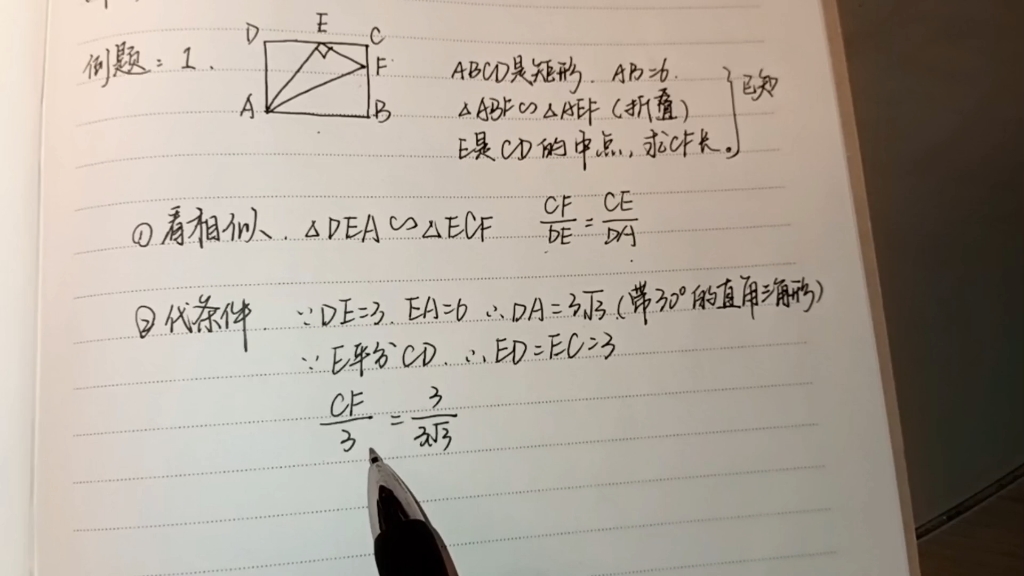 例题：1.
D E C
F
A B
ABCD是矩形. AB=6.
△ABF∽△AEF (折叠)
E是CD的中点，求CF长。
已知
① 看相似. △DEA∽△ECF CF/DE = CE/DA
② 代条件. ∵DE=3. EA=6 ∴DA=3√3 (带30°的直角三角形)
∵E平分CD. ∴ED=EC=3
CF/3 = 3/3√3